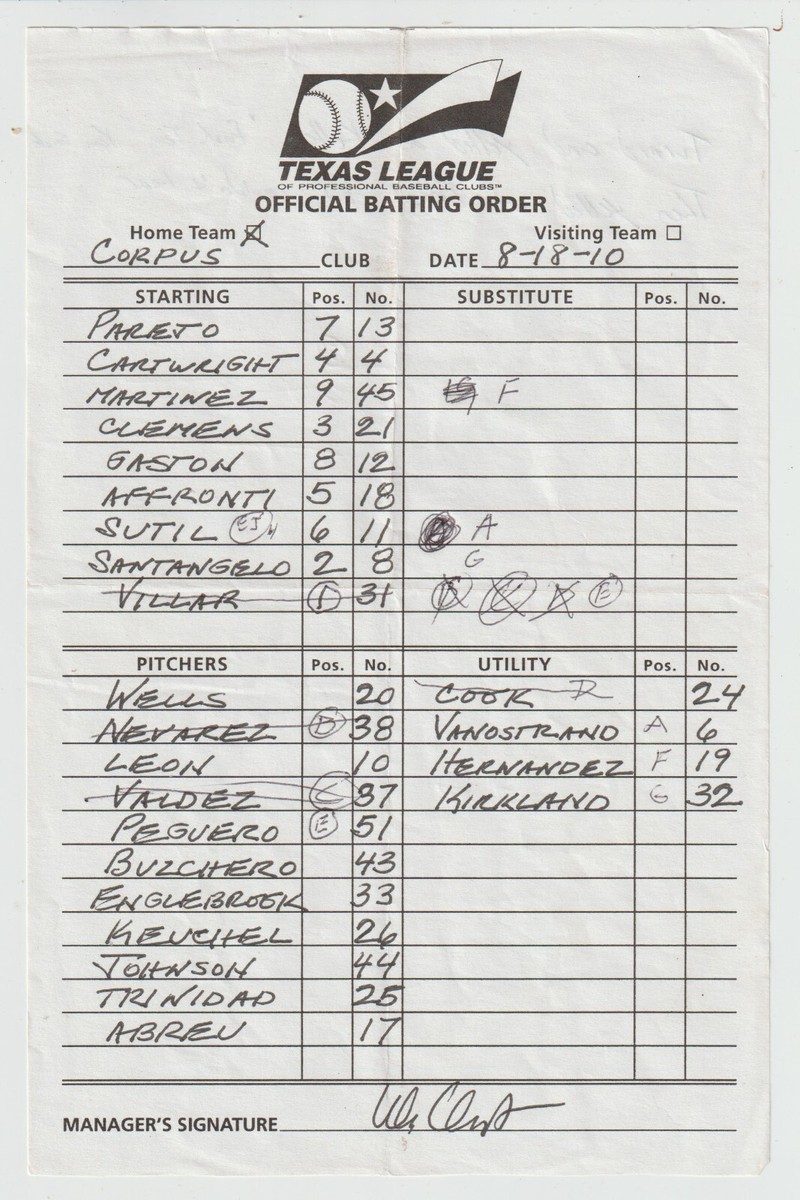 TEXAS LEAGUE
OF PROFESSIONAL BASEBALL CLUBS™
OFFICIAL BATTING ORDER
Home Team Visiting Team
CORPUS CLUB DATE 8-18-10
STARTING Pos. No. SUBSTITUTE Pos. No.
PARETO 7 13
CARTWRIGHT 4 4
MARTINEZ 9 45 F
CLEMENS 3 21
GASTON 8 12
AFFRONTI 5 18
SUTIL EJ 6 11 A
SANTANGELO 2 8 G
VILLAR 1 31 E
PITCHERS Pos. No. UTILITY Pos. No.
WELLS 20 COOK D 24
NEVAREZ B 38 VANOSTRAND A 6
LEON 10 HERNANDEZ F 19
VALDEZ C 37 KIRKLAND G 32
PEGUERO E 51
BUZCHERO 43
ENGLEBROOK 33
KEUCHEL 26
JOHNSON 44
TRINIDAD 25
ABREU 17
MANAGER'S SIGNATURE